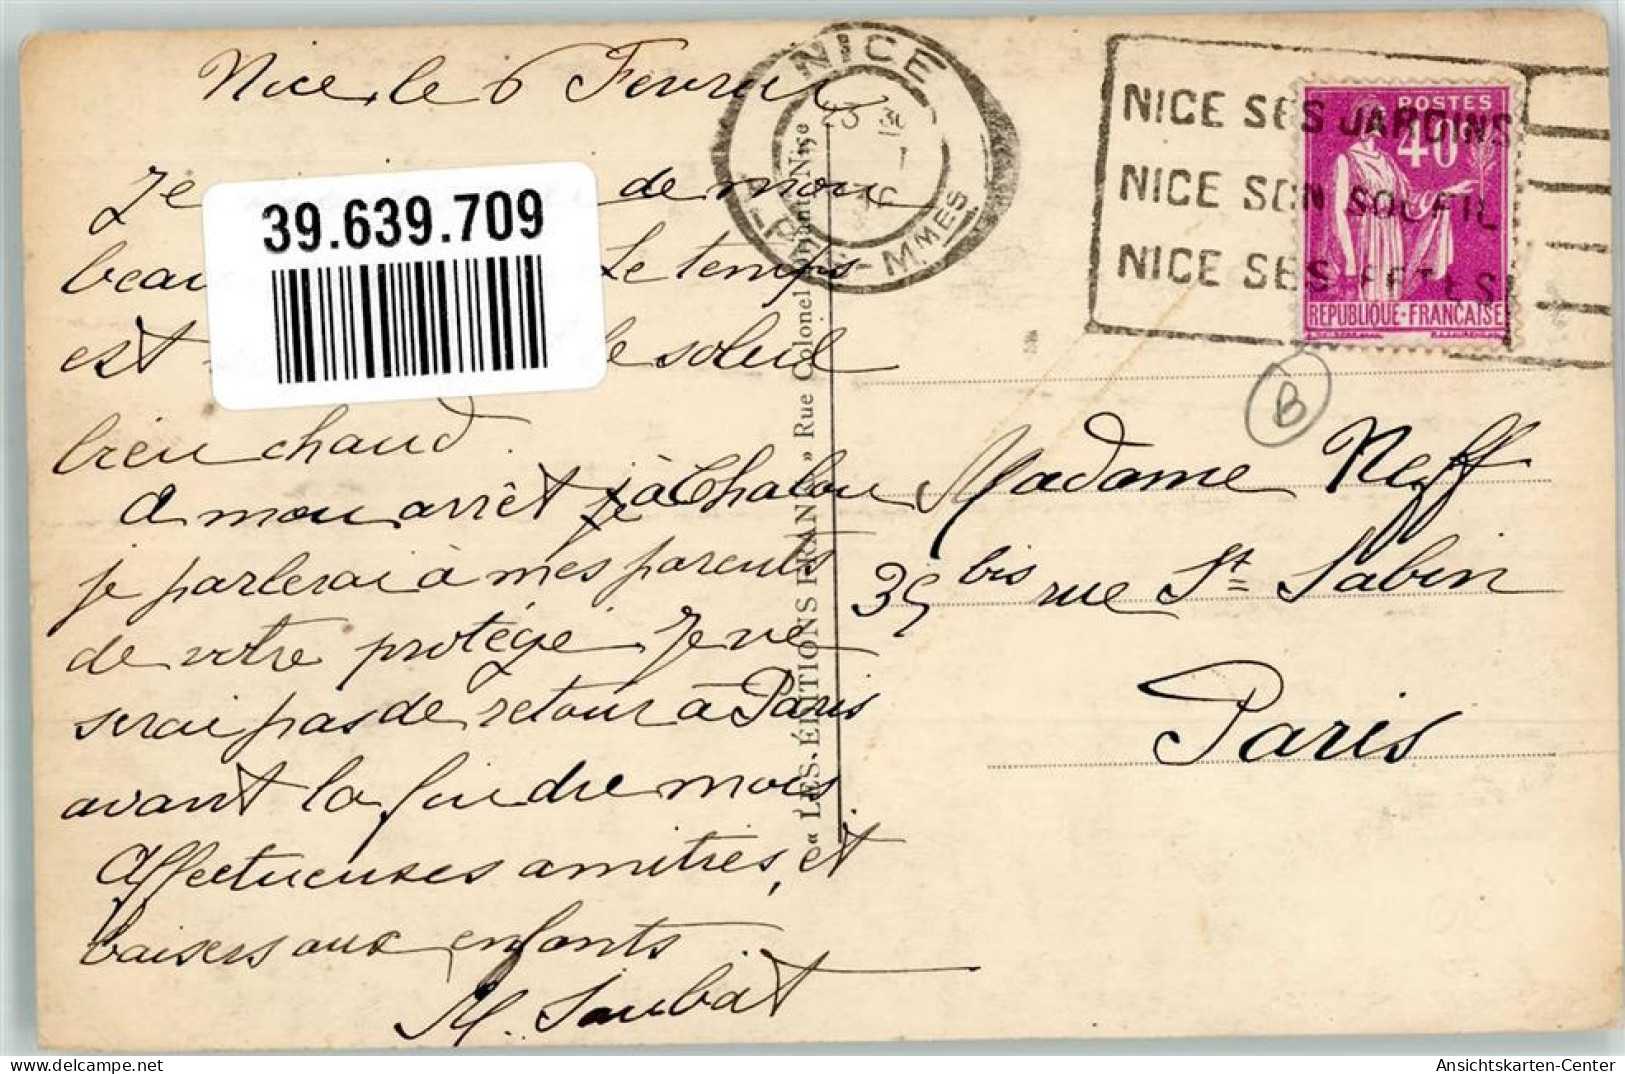 Nice, le 6 Fevrier
Je de mon
beau Le temps
est le soleil
bien chaud.
A mon arrêt à Chalon
je parlerai à mes parents
de votre protégé. Je ne
serai pas de retour à Paris
avant la fin de mois.
Affectueuses amitiés, et
baisers aux enfants
M. Soubat
39.639.709
NICE
A-P. M-MES
NICE SES JARDINS
NICE SON SOLEIL
NICE SES FETES
POSTES
40
REPUBLIQUE-FRANÇAISE
B
« LES ÉDITIONS FRANK » Rue Colonel Nice
Madame Neff
39 bis rue St Sabin
Paris
Ansichtskarten-Center